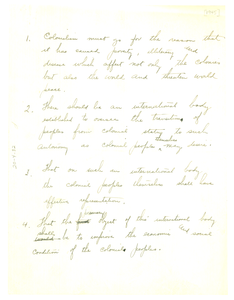 1. Colonialism must go for the reasons that
it has caused poverty, illiteracy and
disease which affect not only the colonies
but also the world and threaten world
peace.
2. There should be an international body
established to the transition of
peoples from colonial status to such
autonomy as colonial peoples may desire.
3. That on such an international body
the colonial peoples themselves shall have
effective representation.
4. That the object of this international body
shall be to improve the economic and social
condition of the colonial peoples.